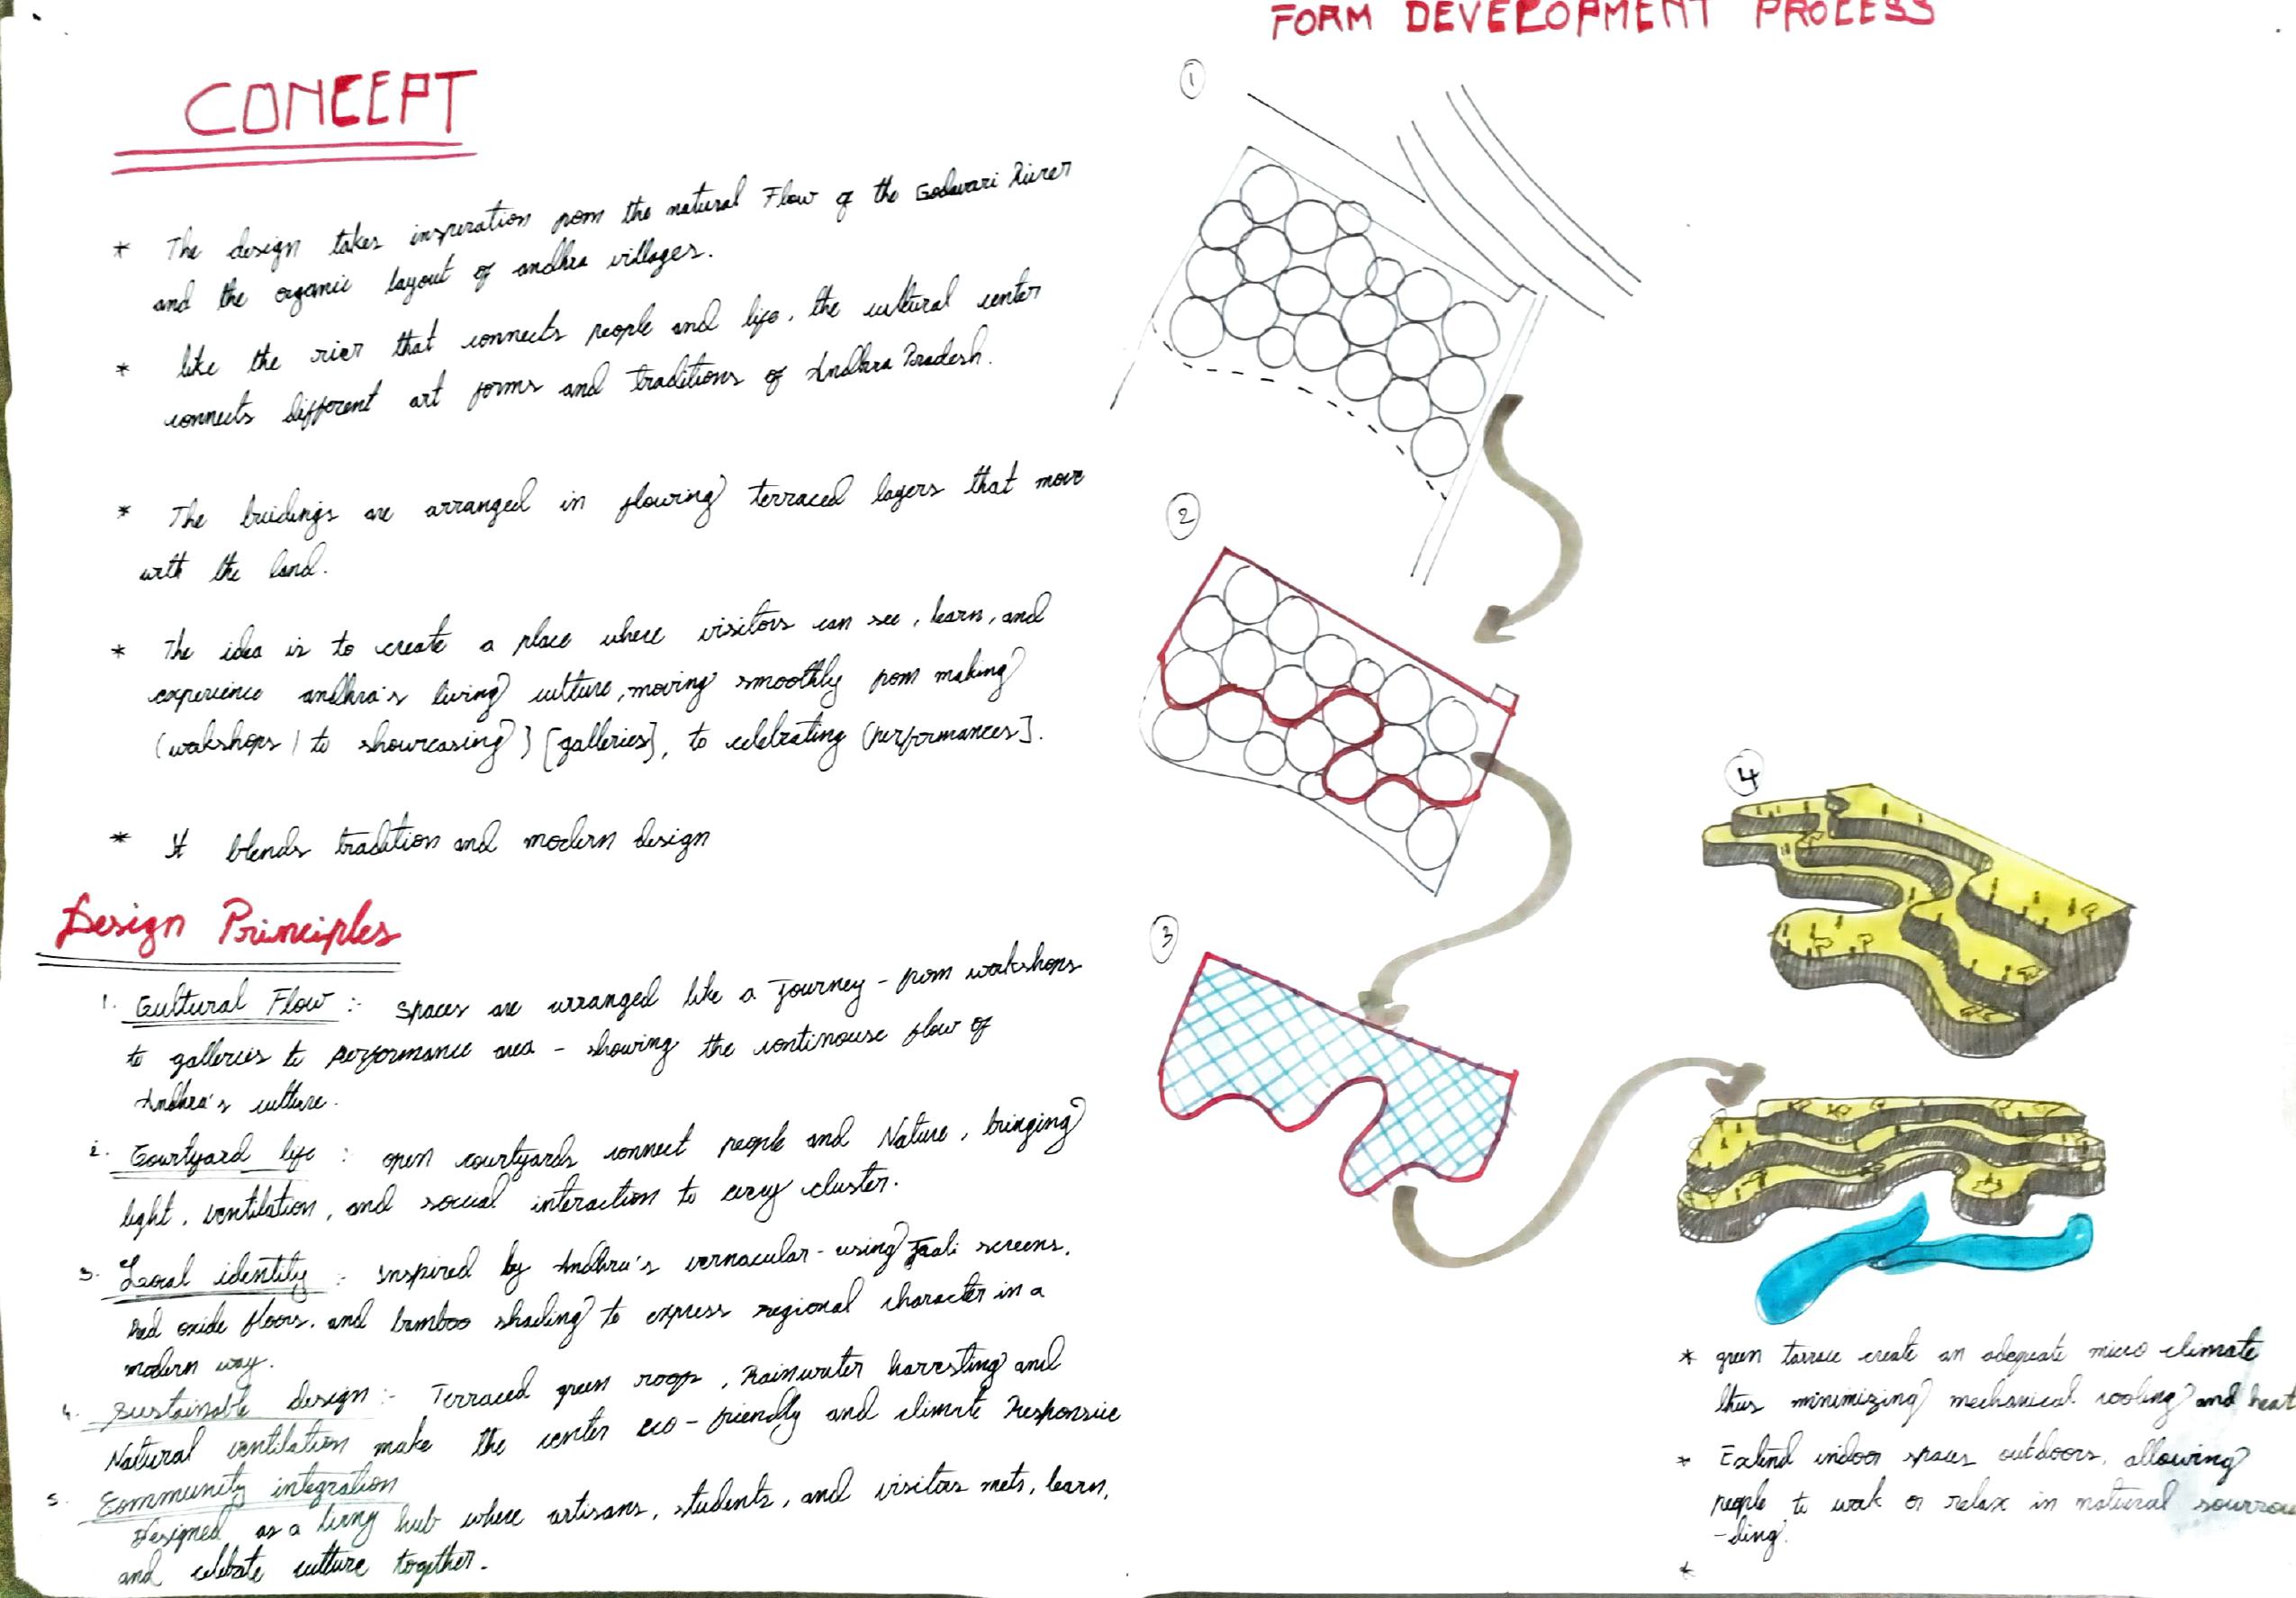 CONCEPT
* The design takes inspreration from the natural Flow of the Godavari River
and the organic layout of andhra villages.
* like the rier that connects people and life, the cultural center
connects different art forms and traditions of Andhra Pradesh.
* The buidings are arranged in flowing terraced layers that move
with the land.
* The idea is to create a place where visitors can see, learn, and
experience andhra's living culture, moving smoothly from making
(wokshops) to showcasing) [galleries], to celebrating (performances].
* It blends tradition and modern design
Design Principles
1. Cultural Flow :- Spaces are arranged like a Journey - from wokshops
to galleries to performance area - showing the continouse flow of
Andhra's culture.
2. Courtyard life : open courtyards connect people and Nature, bringing
light, ventilation, and social interaction to every cluster.
3. Local identity :- inspired by Andhra's vernacular - using Jaali screens,
Red oxide floors, and bamboo shading to express regional character in a
modern way.
4. Sustainable design :- Terraced green roofs, Rainwater harvesting and
Natural ventilation make the center eco-friendly and climate Responsive
5. Community integration
Designed as a living hub where artisans, students, and visitors mets, learn,
and celebate culture together.
FORM DEVELOPMENT PROCESS
1
2
3
4
* green terrace create an adequate micro climate
thus minimizing mechanical cooling and heat
* Extend indoor spaces outdoors, allowing
people to walk or relax in natural sourroun
-ding.
*